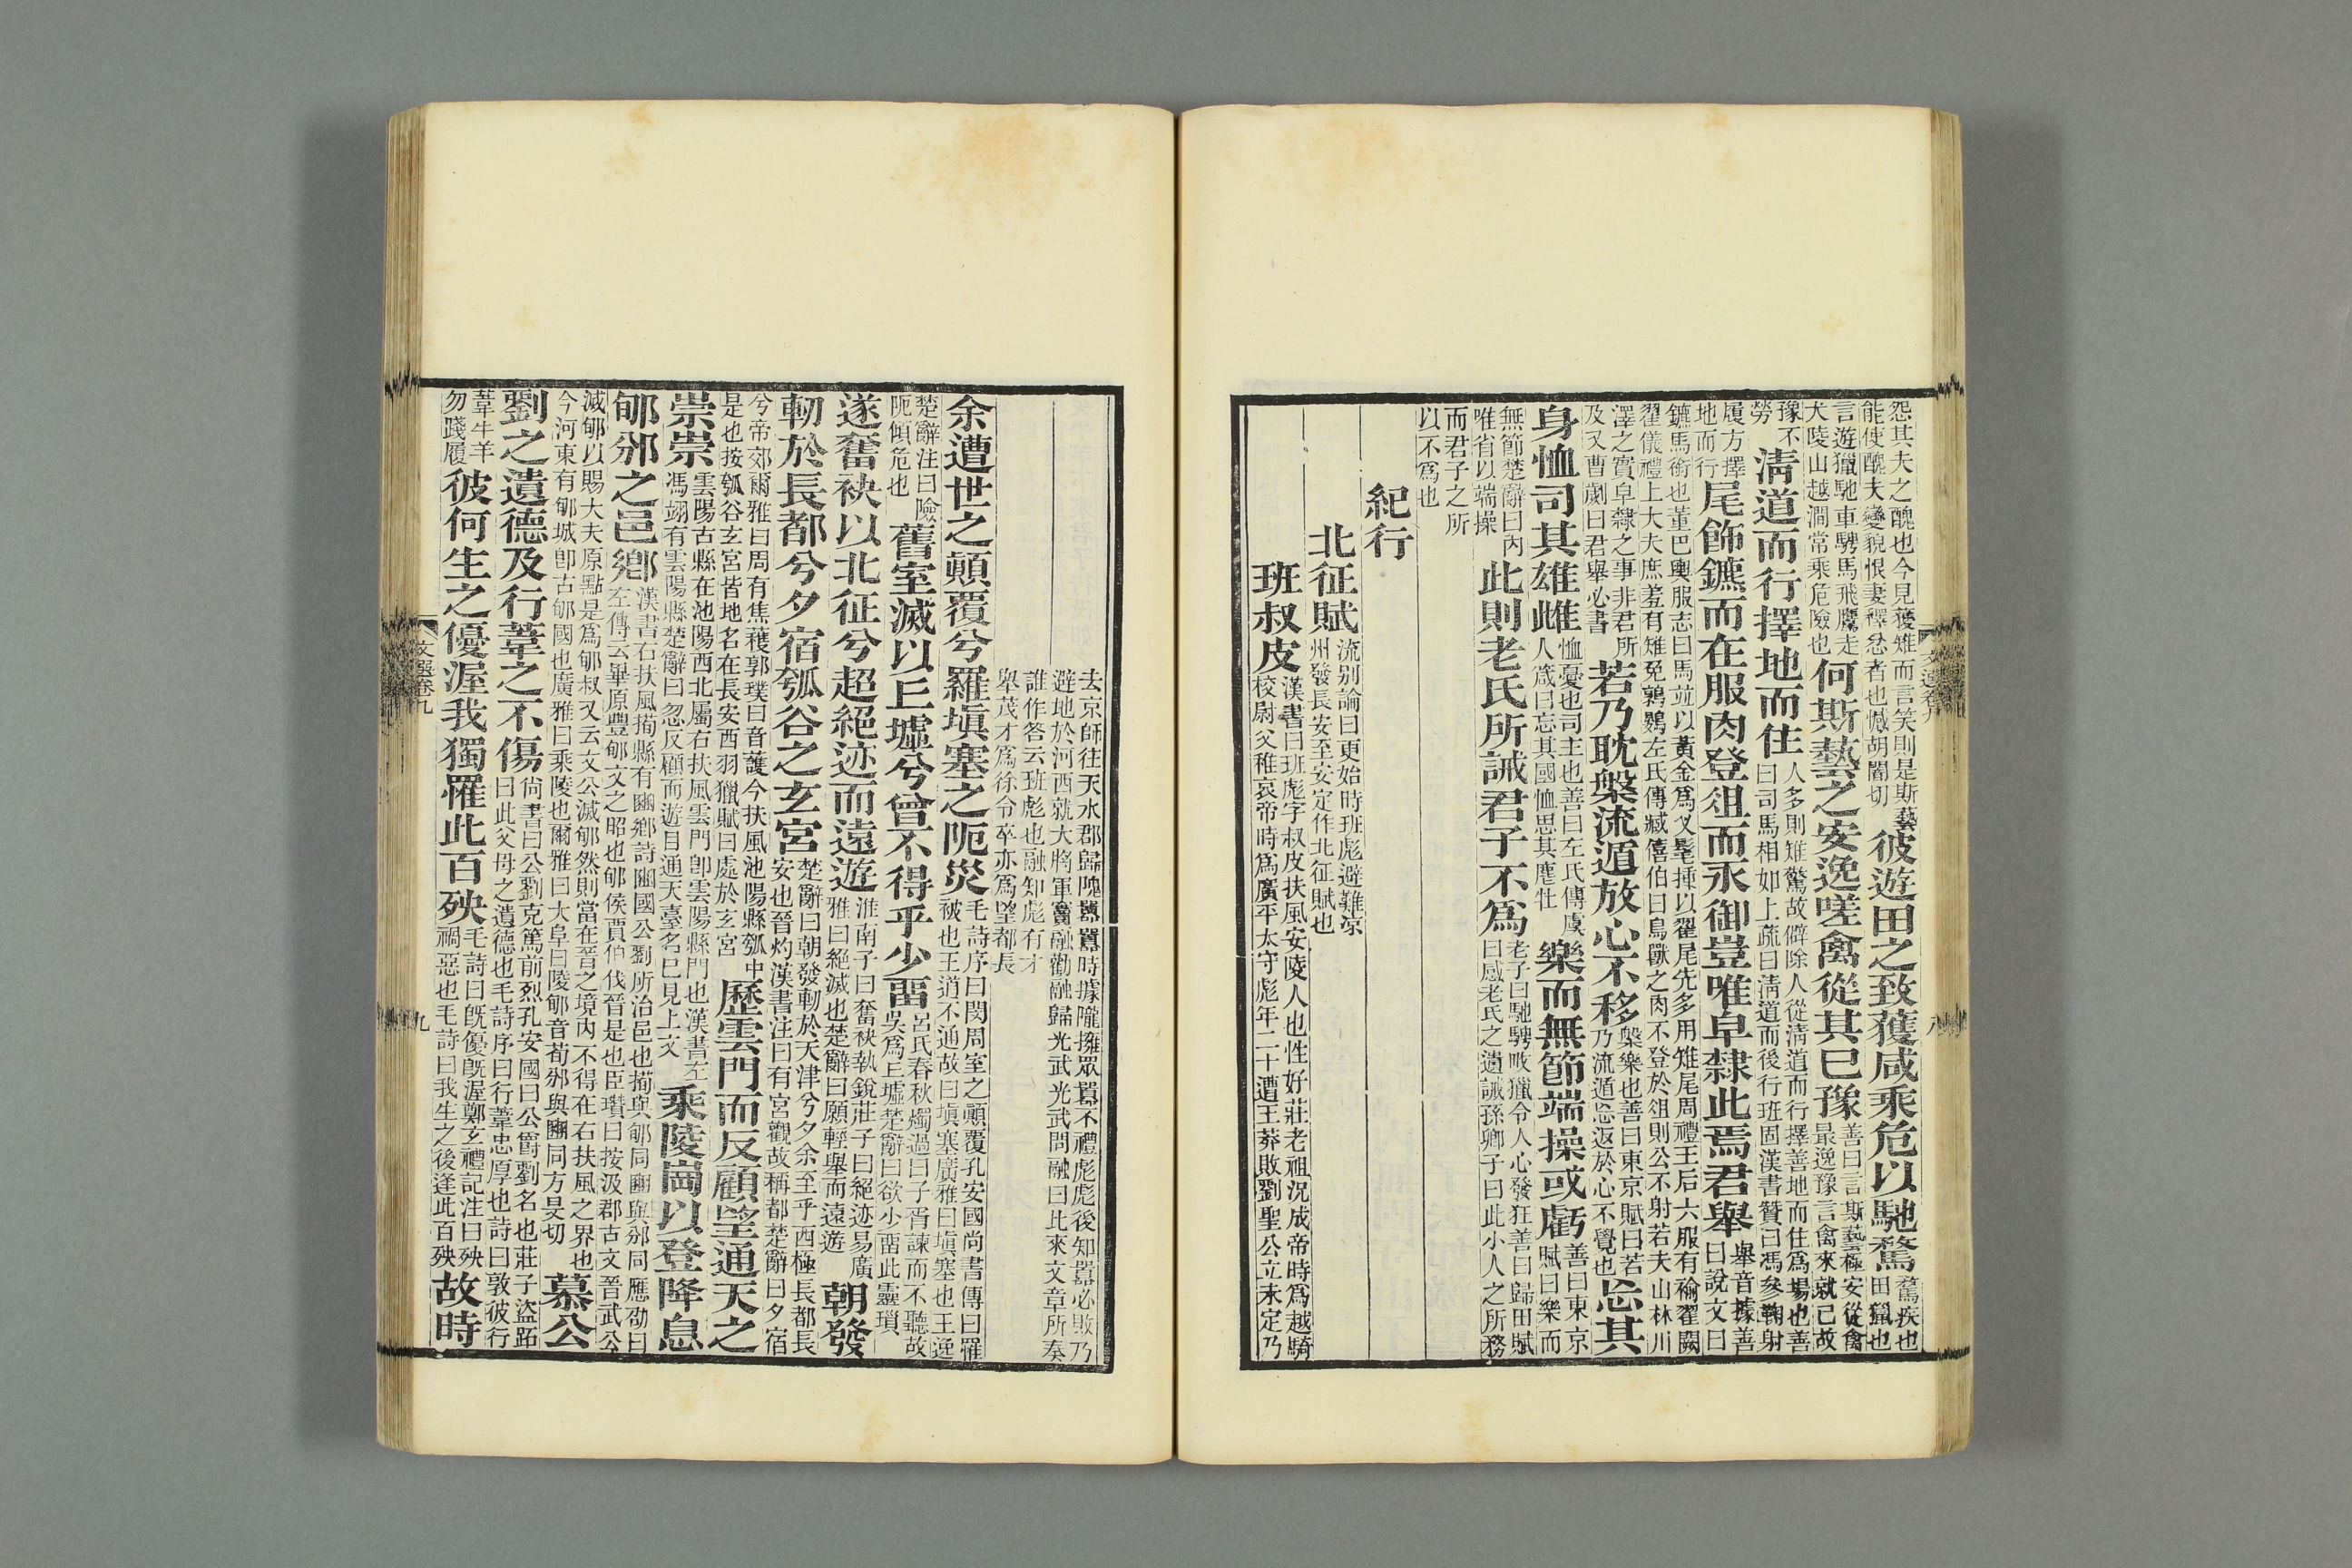 怨其夫之醜也今見獲雉而言笑則是斯藝
能使醜夫變貌恨妻釋忿者也憾胡闇切
彼遊田之致獲咸乘危以馳騖
騖疾也
田獵也
言遊獵馳車騁馬飛鷹走
犬陵山越澗常乘危險也
何斯藝之安逸嗟禽從其已豫
善曰言斯藝極安從禽
最逸豫言禽來就已故
豫不
勞
清道而行擇地而住
人多則雉驚故僻除人從清道而行擇善地而住爲場也善
曰司馬相如上疏曰清道而後行班固漢書贊曰馮參鞠射
履方擇
地而行
尾飾鑣而在服肉登俎而永御豈唯皁隸此焉君舉
舉音據善
曰說文曰
鑣馬銜也董巴輿服志曰馬並以黃金爲㕚髦揷以翟尾先多用雉尾周禮王后六服有褕翟闕
翟儀禮上大夫庶羞有雉兔鶉鷃左氏傳臧僖伯曰鳥獸之肉不登於俎則公不射若夫山林川
澤之實皁隸之事非君所
及又曹劌曰君舉必書
若乃耽槃流遁放心不移
槃樂也善曰東京賦曰若
乃流遁忘返於心不覺也
忘其
身恤司其雄雌
恤憂也司主也善曰左氏傳虞
人箴曰忘其國恤思其麀牡
樂而無節端操或虧
善曰東京
賦曰樂而
無節楚辭曰內
唯省以端操
此則老氏所誡君子不爲
老子曰馳騁畋獵令人心發狂善曰歸田賦
曰感老氏之遺誡孫卿子曰此小人之所務
而君子之所
以不爲也
紀行
北征賦
流別論曰更始時班彪避難涼
州發長安至安定作北征賦也
班叔皮
漢書曰班彪字叔皮扶風安陵人也性好莊老祖況成帝時爲越騎
校尉父稚哀帝時爲廣平太守彪年二十遭王莽敗劉聖公立未定乃
文選卷九
八
去京師往天水郡歸隗囂囂時據隴擁眾囂不禮彪彪後知囂必敗乃
避地於河西就大將軍竇融勸融歸光武光武問融曰比來文章所奏
誰作答云班彪也融知彪有才
舉茂才爲徐令卒亦爲望都長
余遭世之顛覆兮羅塡塞之阨災
毛詩序曰閔周室之顛覆孔安國尚書傳曰罹
被也王道不通故曰塡塞廣雅曰塡塞也王逸
楚辭注曰險
阨傾危也
舊室滅以丘墟兮曾不得乎少畱
呂氏春秋燭過曰子胥諫而不聽故
吳爲丘墟楚辭曰欲少畱此靈瑣
遂奮袂以北征兮超絕迹而遠遊
淮南子曰奮袂執銳莊子曰絕迹易廣
雅曰絕滅也楚辭曰願輕舉而遠遊
朝發
軔於長都兮夕宿瓠谷之玄宮
楚辭曰朝發軔於天津兮夕余至乎西極長都長
安也晉灼漢書注曰有宮觀故稱都楚辭曰夕宿
兮帝郊爾雅曰周有焦穫郭璞曰音護今扶風池陽縣瓠中
是也按瓠谷玄宮皆地名在長安西羽獵賦曰處於玄宮
歷雲門而反顧望通天之
崇崇
雲陽古縣在池陽西北屬右扶風雲門卽雲陽縣門也漢書左
馮翊有雲陽縣楚辭曰忽反顧而遊目通天臺名已見上文
乘陵崗以登降息
郇邠之邑鄕
漢書右扶風栒縣有豳鄕詩豳國公劉所治邑也栒與郇同豳與邠同應劭曰
左傳云畢原豐郇文之昭也郇侯賈伯伐晉是也臣瓚曰按汲郡古文晉武公
滅郇以賜大夫原黯是爲郇叔又云文公滅郇然則當在晉之境內不得在右扶風之界也
今河東有郇城卽古郇國也廣雅曰乘陵也爾雅曰大阜曰陵郇音荀邠與豳同方旻切
慕公
劉之遺德及行葦之不傷
尙書曰公劉克篤前烈孔安國曰公爵劉名也莊子盜跖
曰此父母之遺德也毛詩序曰行葦忠厚也詩曰敦彼行
葦牛羊
勿踐履
彼何生之優渥我獨罹此百殃
毛詩曰旣優旣渥鄭玄禮記注曰殃
禍惡也毛詩曰我生之後逢此百殃
故時
文選卷九
九